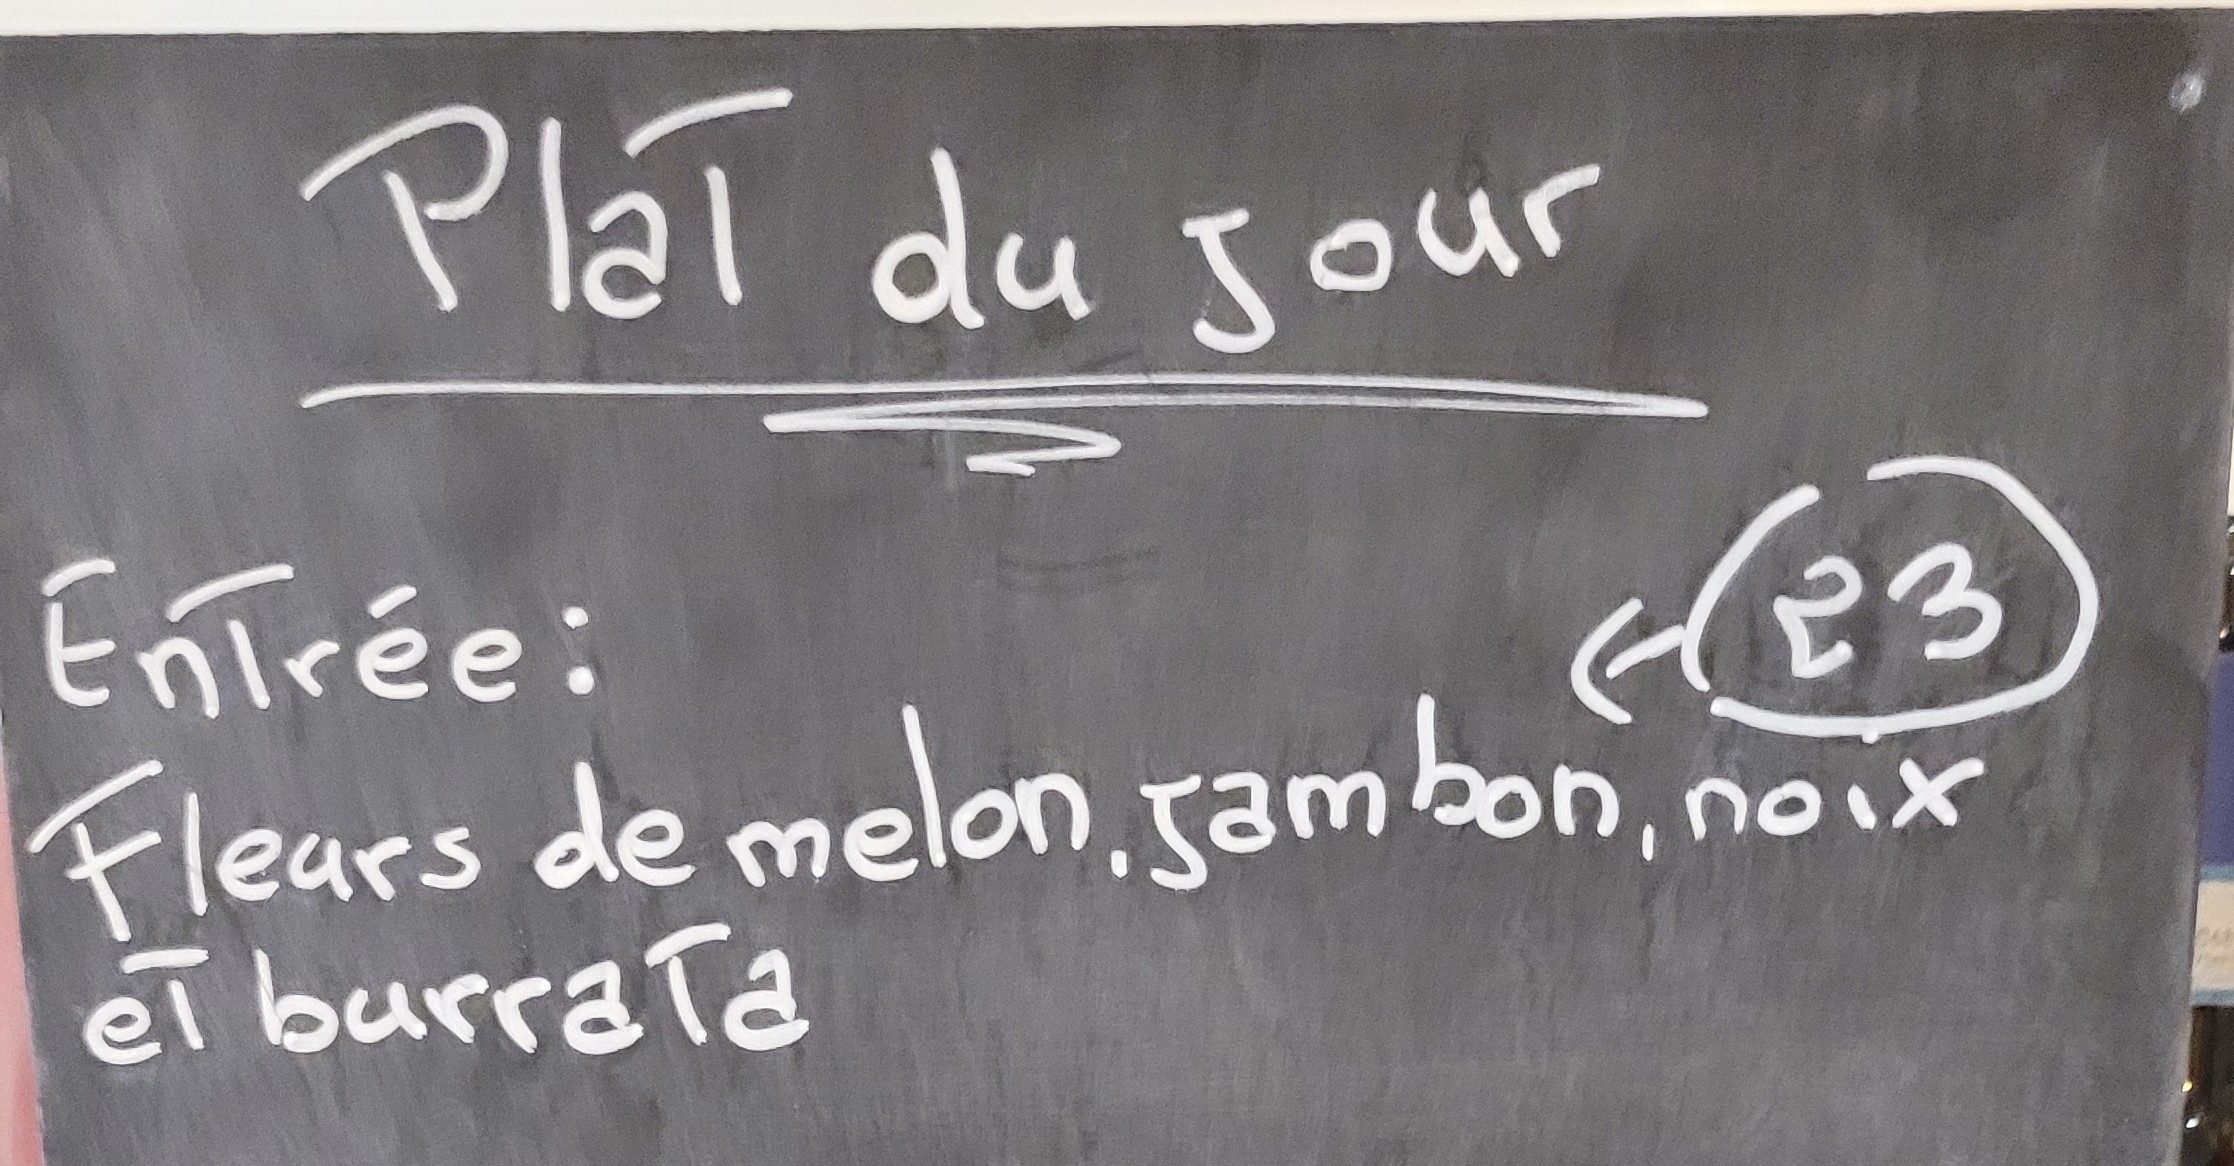 Plat du jour
Entrée:
€23
Fleurs de melon, jambon, noix
et burrata